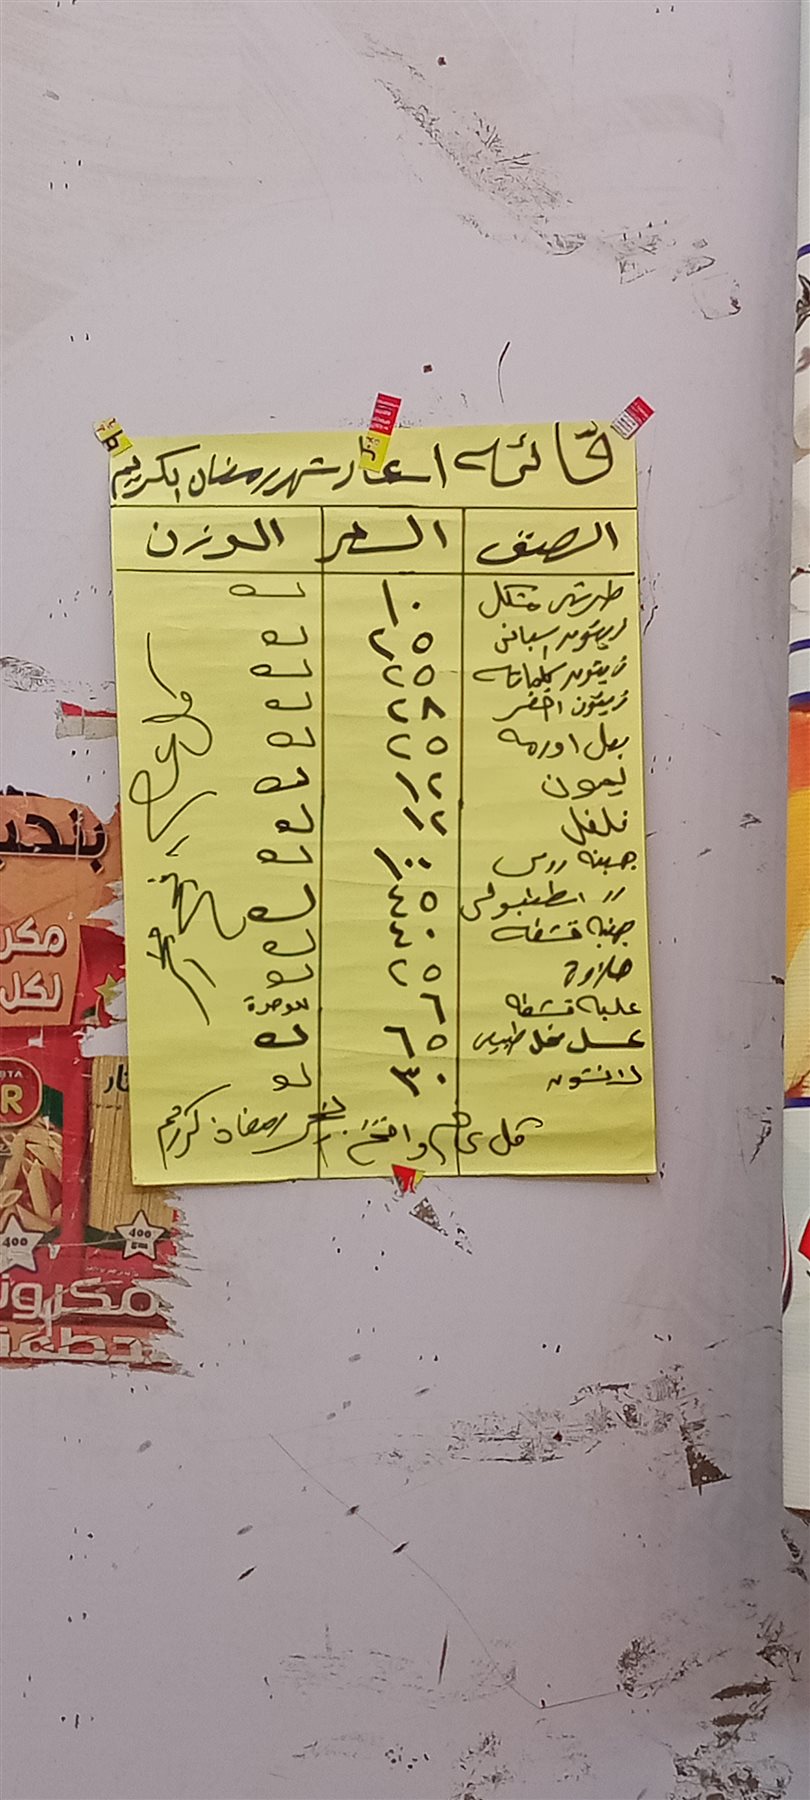 قائمه اسعار شهر رمضان الكريم
الصنف السعر الوزن
طرشي مشكل ١٠ ك
زيتون اسباني ٢٥ ك
زيتون كلماته ٢٥ ك
زيتون اخضر ٢٨ ك
بصل اورمه ٢٥ ك
ليمون ١٢ ك
فلفل ١٢ ك
جبنه رومي ١٠٠ ك
〃 اسطنبولي ٤٥ ك
جبنه قشطه ٤٠ ك
حلاوة ٢٥ ك
علبه قشطه ٦ الوحدة
عسل نحل طبيعي ٦٥ ك
لانشون ٣٠ ك
كل عام وانتم بخير رمضان كريم
مكر
لكل
400
400 gm
مكرون